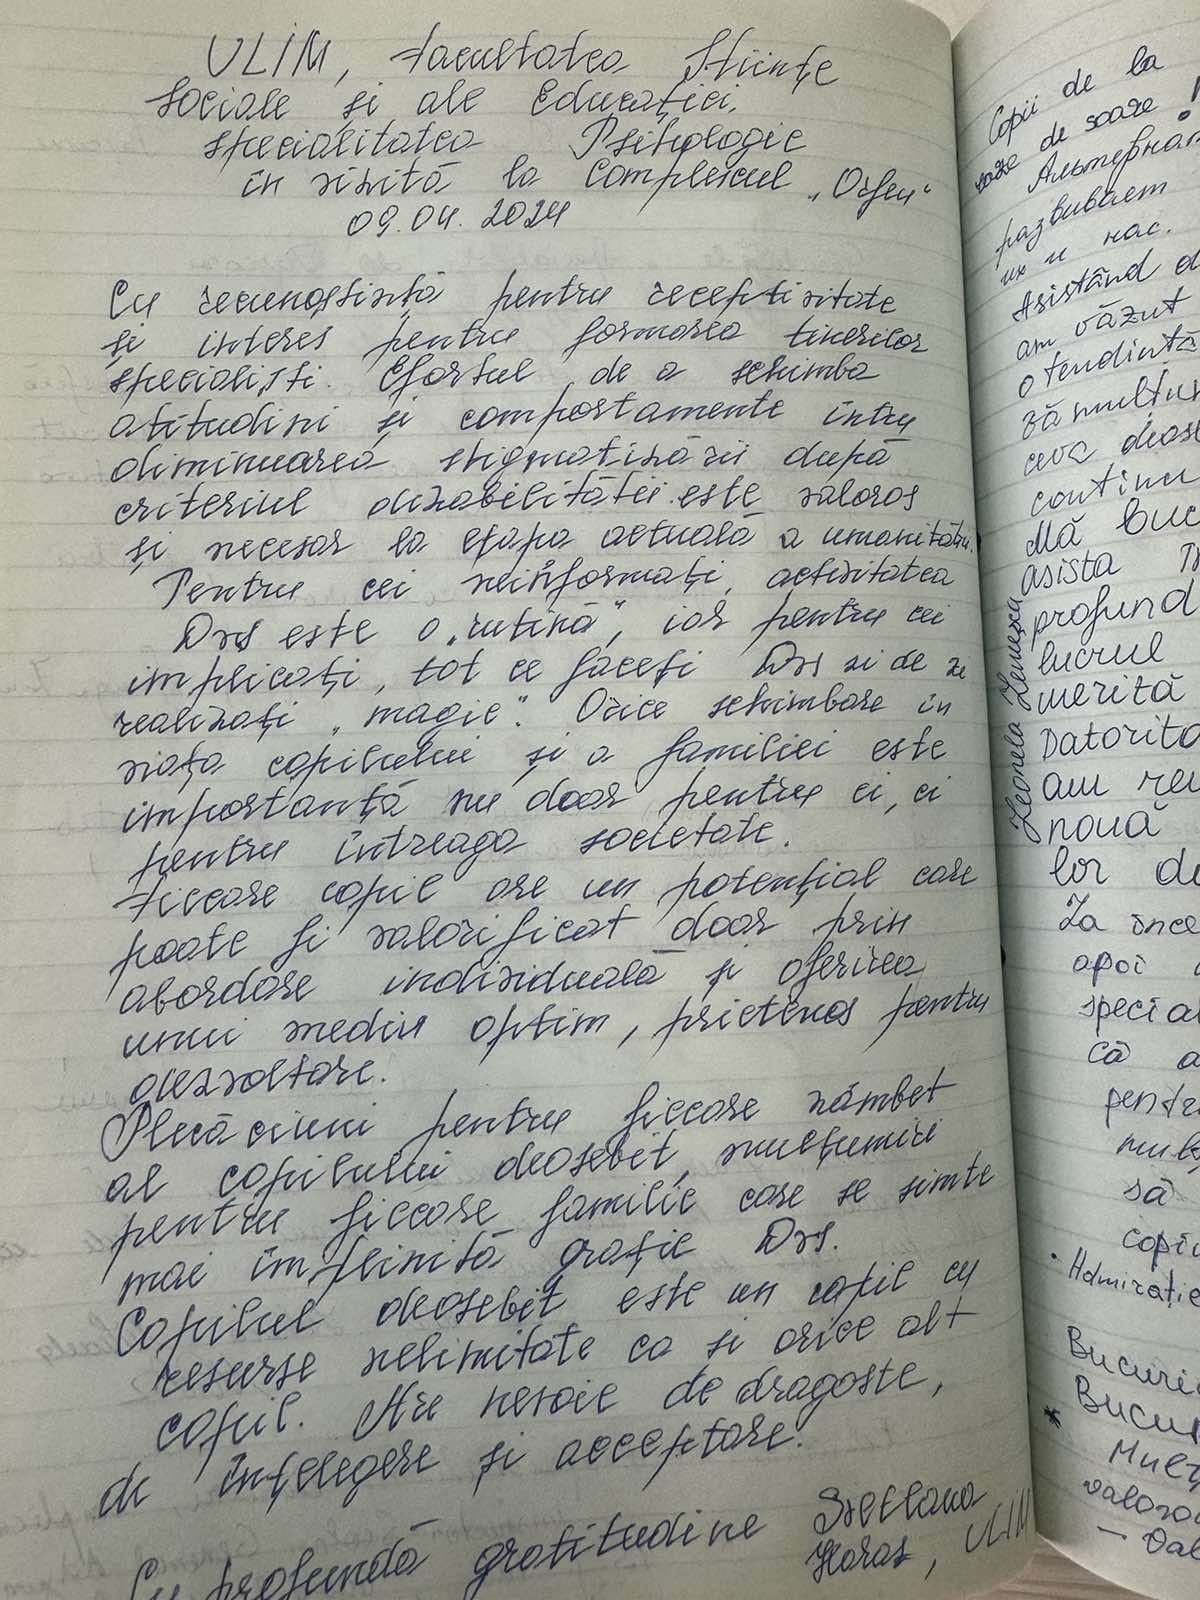 ULIM, Facultatea Științe
Sociale și ale Educației,
specialitatea Psihologie
în vizită la Complexul „Orfeu"
09.04.2024
Cu recunoștință pentru receptivitate
și interes pentru formarea tinerilor
specialiști. Efortul de a schimba
atitudini și comportamente întru
diminuarea stigmatizării după
criteriul dizabilității este valoros
și necesar la etapa actuală a umanității.
Pentru cei neinformați, activitatea
Dvs este o „rutină", iar pentru cei
implicați, tot ce faceți Dvs zi de zi
realizați „magie". Orice schimbare în
viața copilului și a familiei este
importantă nu doar pentru ei, ci
pentru întreaga societate.
Fiecare copil are un potențial care
poate fi valorificat doar prin
abordare individuală și oferirea
unui mediu optim, prietenos pentru
dezvoltare.
Plecăciuni pentru fiecare zâmbet
al copilului deosebit, mulțumiri
pentru fiecare familie care se simte
mai împlinită grație Dvs.
Copilul deosebit este un copil cu
resurse nelimitate ca și orice alt
copil. Are nevoie de dragoste,
de înțelegere și acceptare.
Cu profundă gratitudine Svetlana
Haraz, ULIM
Copii de la
soare de soare
Альтернат
развиваем
их и нас.
Asistând d
am văzut
o tendință
ză mulțum
ceva deos
continu
Mă buc
asista
profund
lucrul
merită
Datorită
am reu
nouă
lor de
La înce
apoi
special
că a
pentr
mult
să
copiu
• Admirație
Bucuri
* Bucur
Mulț
valoro